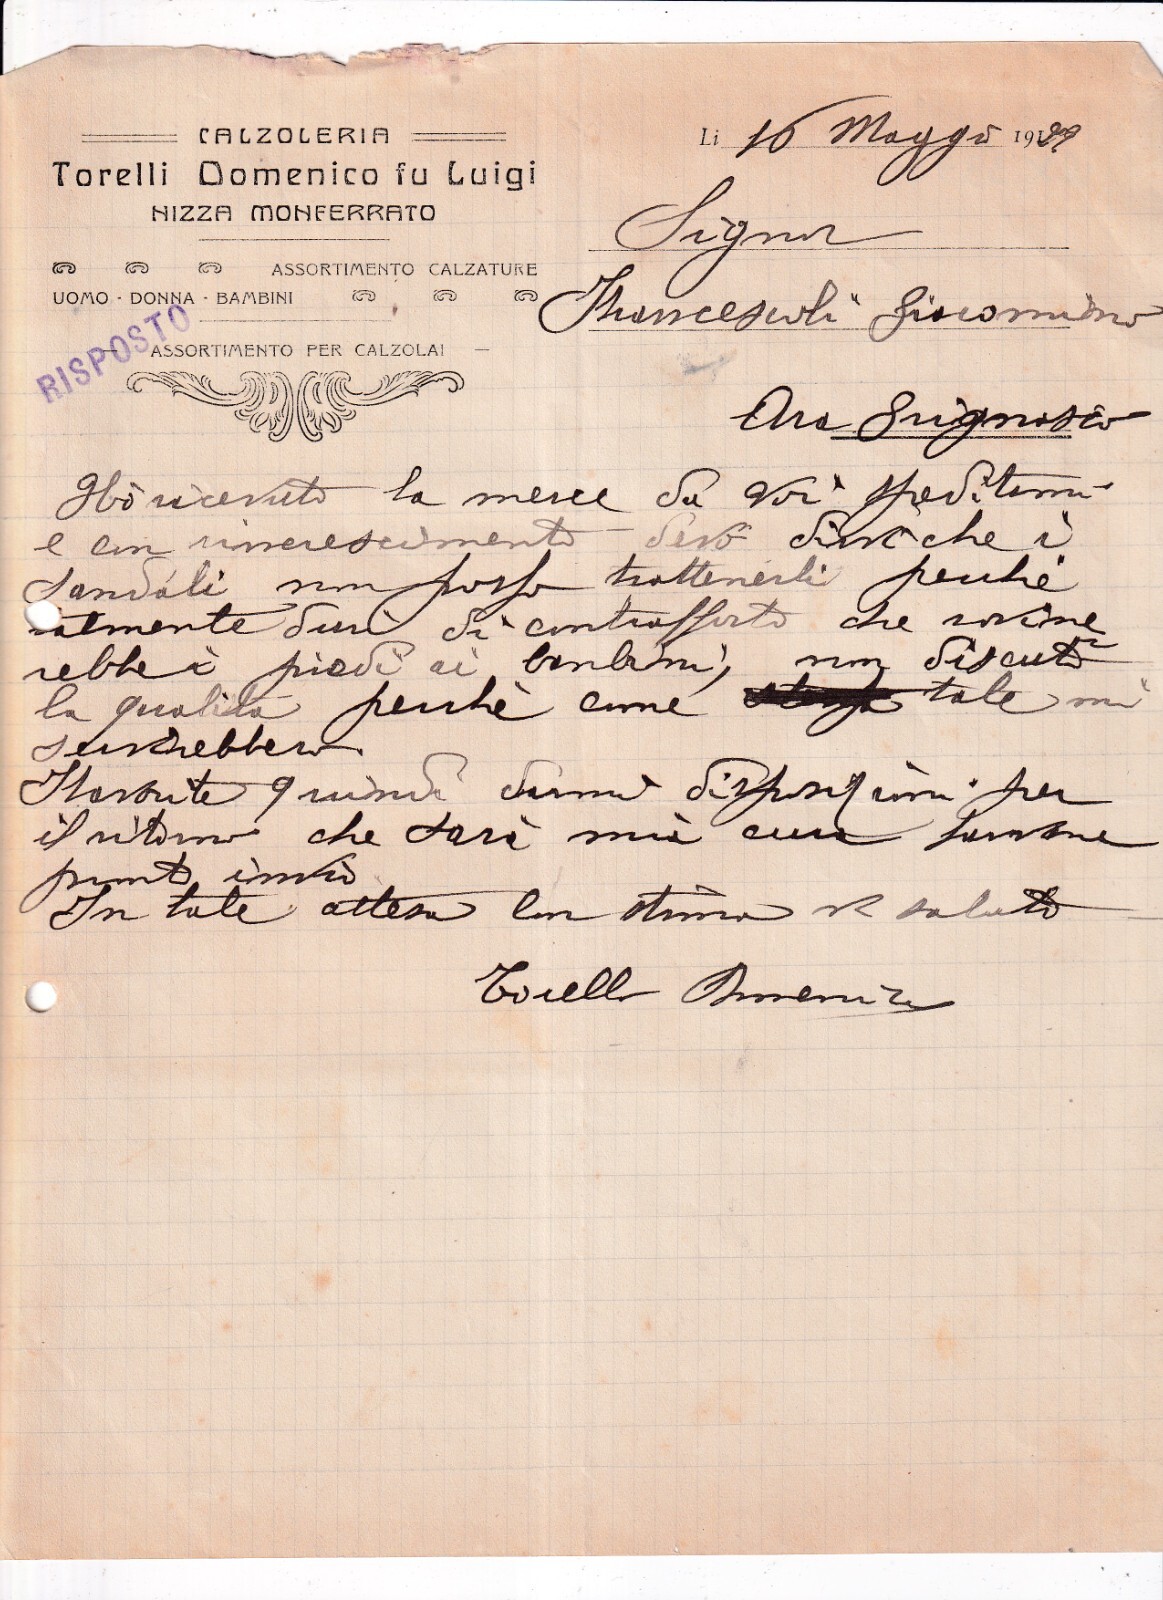 CALZOLERIA
Torelli Domenico fu Luigi
NIZZA MONFERRATO
ASSORTIMENTO CALZATURE
UOMO - DONNA - BAMBINI
RISPOSTO
— ASSORTIMENTO PER CALZOLAI —
Li 16 Maggio 1929
Signor
Francescoli Giacomino
Ara Grignasco
Hò ricevuto la merce da voi speditami
e con rincrescimento devo dirvi che i
sandali non posso trattenerli perchè
talmente duri di contrafforto che rovine
rebbe i piedi ai bambini, non discuto
la qualità perchè come tale mi
servirebbero.
Favorite quindi darmi disposizioni per
il ritorno che sarà mia cura farvene
pronto invio
In tale attesa con stima vi saluto
Torelli Domenico